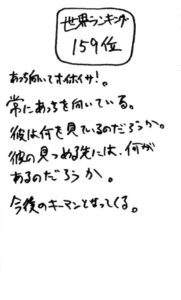 世界ランキング
159位
あっち向いてホイホイサ!。
常にあっちを向いている。
彼は何を見ているのだろうか。
彼の見つめる先には、何が
あるのだろうか。
今後のキーマンとなってくる。